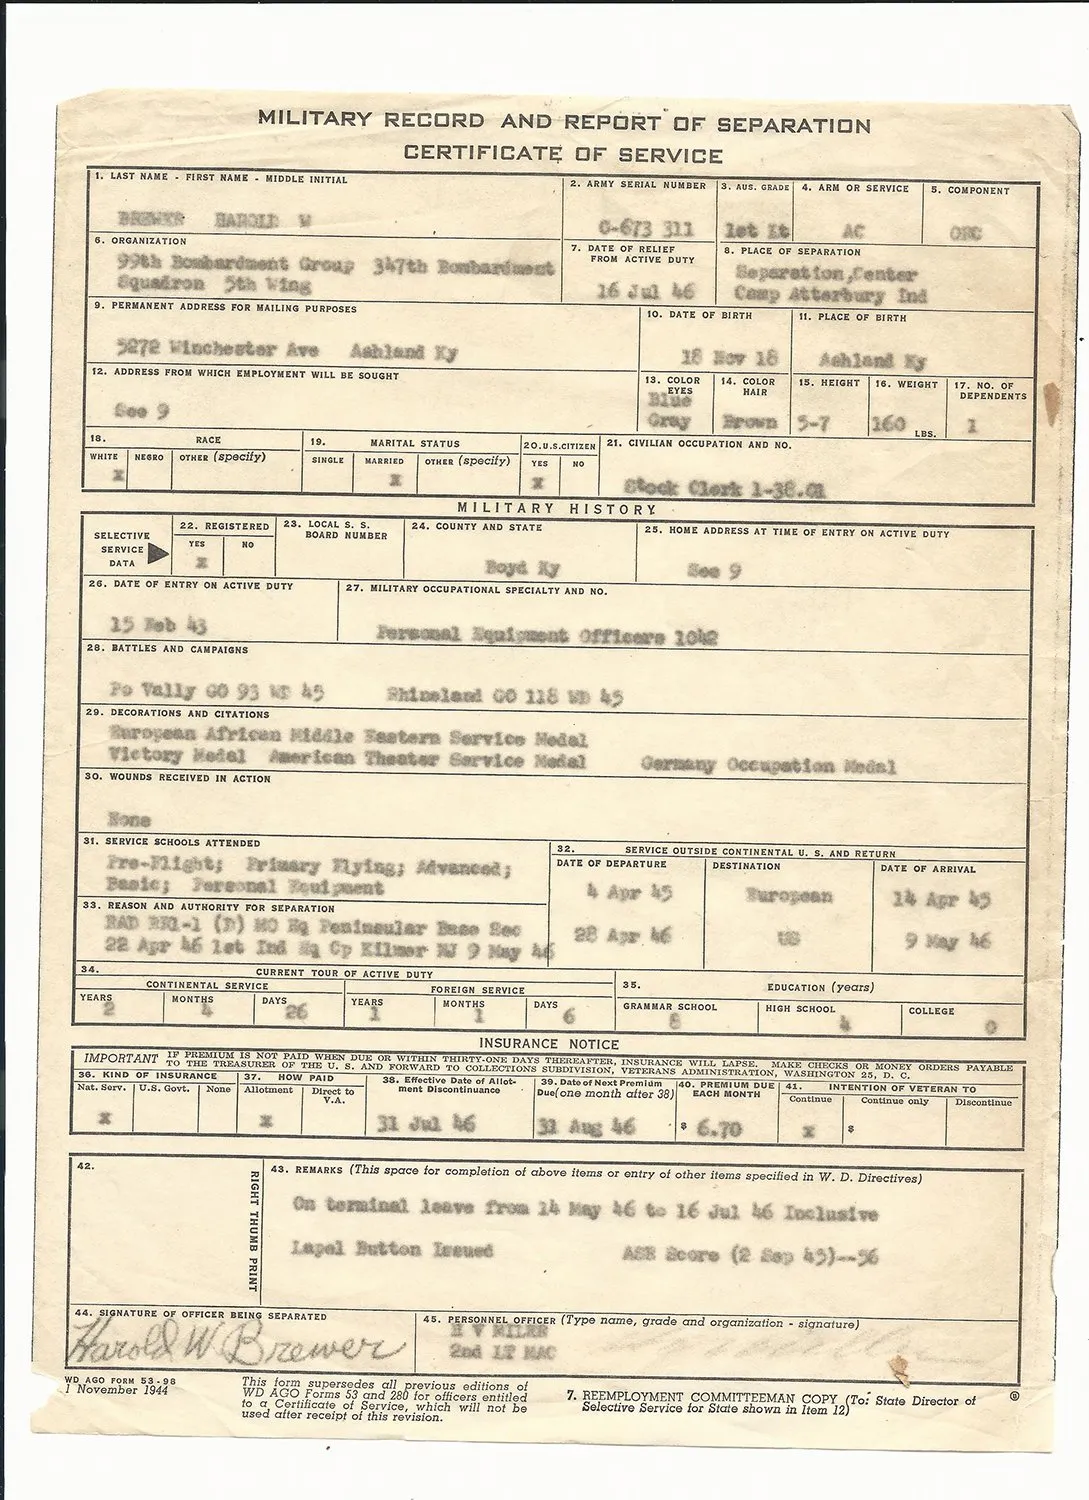 MILITARY RECORD AND REPORT OF SEPARATION
CERTIFICATE OF SERVICE
1. LAST NAME - FIRST NAME - MIDDLE INITIAL
BREWER HAROLD W
2. ARMY SERIAL NUMBER
O-673 311
3. AUS. GRADE
1st Lt
4. ARM OR SERVICE
AC
5. COMPONENT
ORC
6. ORGANIZATION
99th Bombardment Group 347th Bombardment
Squadron 5th Wing
7. DATE OF RELIEF
FROM ACTIVE DUTY
16 Jul 46
8. PLACE OF SEPARATION
Separation,Center
Camp Atterbury Ind
9. PERMANENT ADDRESS FOR MAILING PURPOSES
5272 Winchester Ave Ashland Ky
10. DATE OF BIRTH
18 Nov 18
11. PLACE OF BIRTH
Ashland Ky
12. ADDRESS FROM WHICH EMPLOYMENT WILL BE SOUGHT
See 9
13. COLOR
EYES
Blue
Gray
14. COLOR
HAIR
Brown
15. HEIGHT
5-7
16. WEIGHT
160 LBS.
17. NO. OF
DEPENDENTS
1
18. RACE
WHITE NEGRO OTHER (specify)
X
19. MARITAL STATUS
SINGLE MARRIED OTHER (specify)
X
20.U.S.CITIZEN
YES NO
X
21. CIVILIAN OCCUPATION AND NO.
Stock Clerk 1-38.01
MILITARY HISTORY
SELECTIVE
SERVICE
DATA
22. REGISTERED
YES NO
X
23. LOCAL S. S.
BOARD NUMBER
24. COUNTY AND STATE
Boyd Ky
25. HOME ADDRESS AT TIME OF ENTRY ON ACTIVE DUTY
See 9
26. DATE OF ENTRY ON ACTIVE DUTY
15 Feb 43
27. MILITARY OCCUPATIONAL SPECIALTY AND NO.
Personal Equipment Officers 1042
28. BATTLES AND CAMPAIGNS
Po Vally GO 93 WD 45 Rhineland GO 118 WD 45
29. DECORATIONS AND CITATIONS
European African Middle Eastern Service Medal
Victory Medal American Theater Service Medal Germany Occupation Medal
30. WOUNDS RECEIVED IN ACTION
None
31. SERVICE SCHOOLS ATTENDED
Pre-Flight; Primary Flying; Advanced;
Basic; Personal Equipment
32. SERVICE OUTSIDE CONTINENTAL U. S. AND RETURN
DATE OF DEPARTURE DESTINATION DATE OF ARRIVAL
4 Apr 45 European 14 Apr 45
28 Apr 46 US 9 May 46
33. REASON AND AUTHORITY FOR SEPARATION
RAD RR1-1 (D) MO Hq Peninsular Base Sec
22 Apr 46 1st Ind Hq Cp Kilmer NJ 9 May 46
34. CURRENT TOUR OF ACTIVE DUTY
CONTINENTAL SERVICE FOREIGN SERVICE
YEARS MONTHS DAYS YEARS MONTHS DAYS
2 4 26 1 1 6
35. EDUCATION (years)
GRAMMAR SCHOOL HIGH SCHOOL COLLEGE
8 4 0
INSURANCE NOTICE
IMPORTANT IF PREMIUM IS NOT PAID WHEN DUE OR WITHIN THIRTY-ONE DAYS THEREAFTER, INSURANCE WILL LAPSE. MAKE CHECKS OR MONEY ORDERS PAYABLE
TO THE TREASURER OF THE U. S. AND FORWARD TO COLLECTIONS SUBDIVISION, VETERANS ADMINISTRATION, WASHINGTON 25, D. C.
36. KIND OF INSURANCE
Nat. Serv. U.S. Govt. None
X
37. HOW PAID
Allotment Direct to
V.A.
X
38. Effective Date of Allot-
ment Discontinuance
31 Jul 46
39. Date of Next Premium
Due(one month after 38)
31 Aug 46
40. PREMIUM DUE
EACH MONTH
$ 6.70
41. INTENTION OF VETERAN TO
Continue Continue only Discontinue
X $
42.
RIGHT THUMB PRINT
43. REMARKS (This space for completion of above items or entry of other items specified in W. D. Directives)
On terminal leave from 14 May 46 to 16 Jul 46 Inclusive
Lapel Button Issued ASR Score (2 Sep 45)--56
44. SIGNATURE OF OFFICER BEING SEPARATED
Harold W Brewer
45. PERSONNEL OFFICER (Type name, grade and organization - signature)
2nd LT MAC
WD AGO FORM 53-98
1 November 1944
This form supersedes all previous editions of
WD AGO Forms 53 and 280 for officers entitled
to a Certificate of Service, which will not be
used after receipt of this revision.
7. REEMPLOYMENT COMMITTEEMAN COPY (To: State Director of
Selective Service for State shown in Item 12)